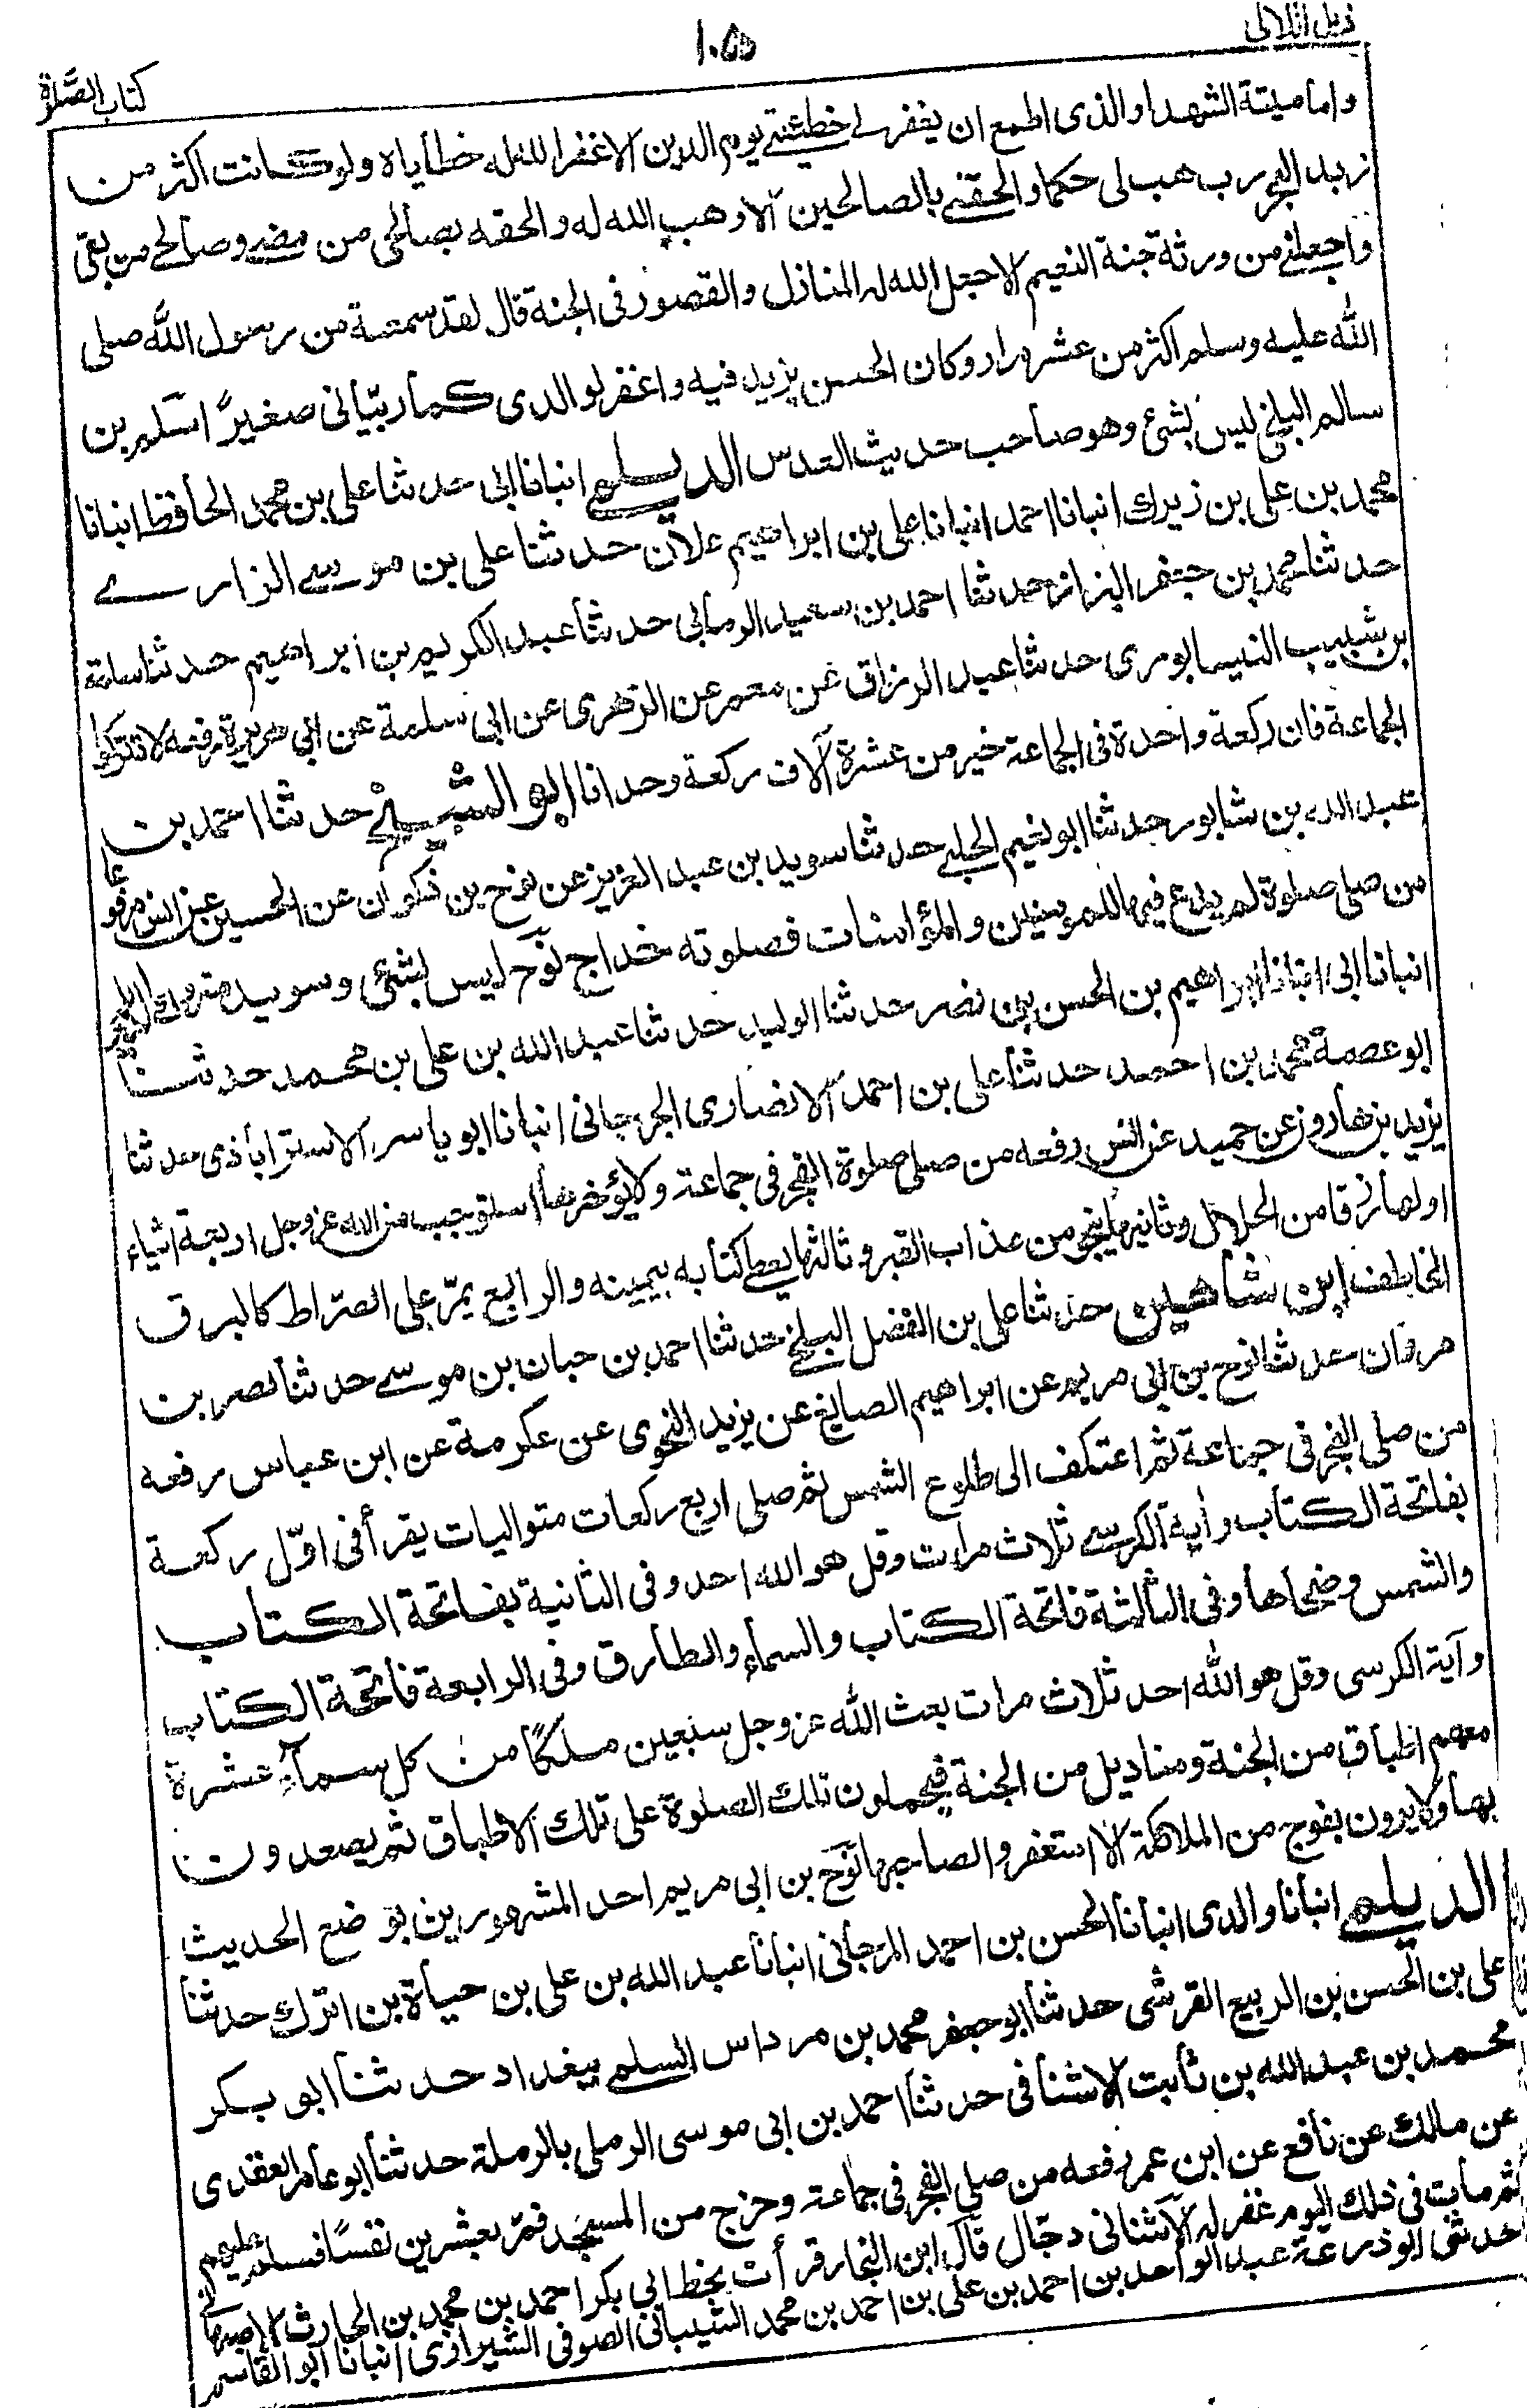 ذيل اللآلى
١٠٥
كتاب الصلوة
واماميتة الشهداء والذى اطمع ان يغفر لے خطيئتے يوم الدين الا غفر الله له خطاياه ولوكانت اكثر من
زبد البحر رب هب لى حكما والحقنے بالصالحين الا وهب الله له والحقه بصالحى من مضے وصالحے من بقى
واجعلنے من ورثة جنة النعيم الا جعل الله له المنازل والقصور فى الجنة قال لقد سمعته من رسول الله صلى
الله عليه وسلم اكثر من عشر مرار وكان الحسن يزيد فيه واغفر لوالدى كما ربيانى صغيرًا اسلم بن
سالم البلخى ليس بشئ وهو صاحب حديث العدس الديلمے انبانا ابى حدثنا على بن محمد الحافظ انبانا
محمد بن على بن زيرك انبانا احمد انبانا على بن ابراهيم علان حدثنا على بن موسے الزارے
حدثنا محمد بن جعفر البزاز حدثنا احمد بن سعيد الرمانى حدثنا عبد الكريم بن ابراهيم حدثنا سلمة
بن شبيب النيسابورى حدثنا عبد الرزاق عن معمر عن الزهرى عن ابى سلمة عن ابى هريرة رفعه لا تتركوا
الجماعة فان ركعة واحدة فى الجماعة خير من عشرة آلاف ركعة وحدانا ابو الشيخ حدثنا احمد بن
عبد الله بن شابور حدثنا ابو نعيم الحلبے حدثنا سويد بن عبد العزيز عن نوح بن ذكوان عن الحسن عن انس مرفوعا
من صلى صلوة لم يدع فيها للمومنين والمؤمنات فصلوته خداج نوح ليس بشئ وسويد متروك الديلمے
انبانا ابى انبانا ابراهيم بن الحسن بن نصر حدثنا الوليد حدثنا عبد الله بن على بن محمد حدثنا
ابو عصمة محمد بن احمد حدثنا على بن احمد الانصارى الجرجانى انبانا ابو ياسر الاستراباذى حدثنا
يزيد بن هارون عن حميد عن انس رفعه من صلى صلوة الفجر فى جماعة ولا يؤخرها استوجب من الله عز وجل اربعة اشياء
اولها رزقا من الحلال وثانيها ينجو من عذاب القبر وثالثها يعطے كتابه بيمينه والرابع يمر على الصراط كالبرق
الخاطف ابن شاهين حدثنا على بن الفضل البلخے حدثنا احمد بن حبان بن موسے حدثنا نصر بن
مرقان حدثنا نوح بن ابى مريم عن ابراهيم الصايغ عن يزيد النحوى عن عكرمة عن ابن عباس رفعه
من صلى الفجر فى جماعة ثم اعتكف الى طلوع الشمس ثم صلى اربع ركعات متواليات يقرأ فى اوّل ركعة
بفاتحة الكتاب وأية الكرسے ثلاث مرات وقل هو الله احد وفى الثانية بفاتحة الكتاب
والشمس وضحاها وفى الثالثة فاتحة الكتاب والسماء والطارق وفى الرابعة فاتحة الكتاب
وآية الكرسى وقل هو الله احد ثلاث مرات بعث الله عز وجل سبعين ملكًا من كل سماء عشرة
معهم اطباق من الجنة ومناديل من الجنة فيحملون تلك الصلوة على تلك الاطباق ثم يصعدون
بها ولا يمرون بفوج من الملائكة الا استغفروا لصاحبها نوح بن ابى مريم احد المشهورين بوضع الحديث
الديلمے انبانا والدى انبانا الحسن بن احمد المرجانى انبانا عبد الله بن على بن حياة بن اترك حدثنا
على بن الحسن بن الربيع القرشى حدثنا ابو جعفر محمد بن مرداس السلمے ببغداد حدثنا ابو بكر
محمد بن عبد الله بن ثابت الاشنانى حدثنا احمد بن ابى موسى الرملى بالرملة حدثنا ابو عامر العقدى
عن مالك عن نافع عن ابن عمر رفعه من صلى الفجر فى جماعة وخرج من المسجد فمر بعشرين نفسًا فسلم عليهم
ثم مات فى ذلك اليوم غفر له الاشنانى دجّال قال ابن النجار قرأت بخط ابى بكر احمد بن محمد بن الحارث الاصبهانے
حدثنى ابو ذرعة عبد الواحد بن احمد بن على بن احمد بن محمد الشيبانى الصوفى الشيرازى انبانا ابو القاسم